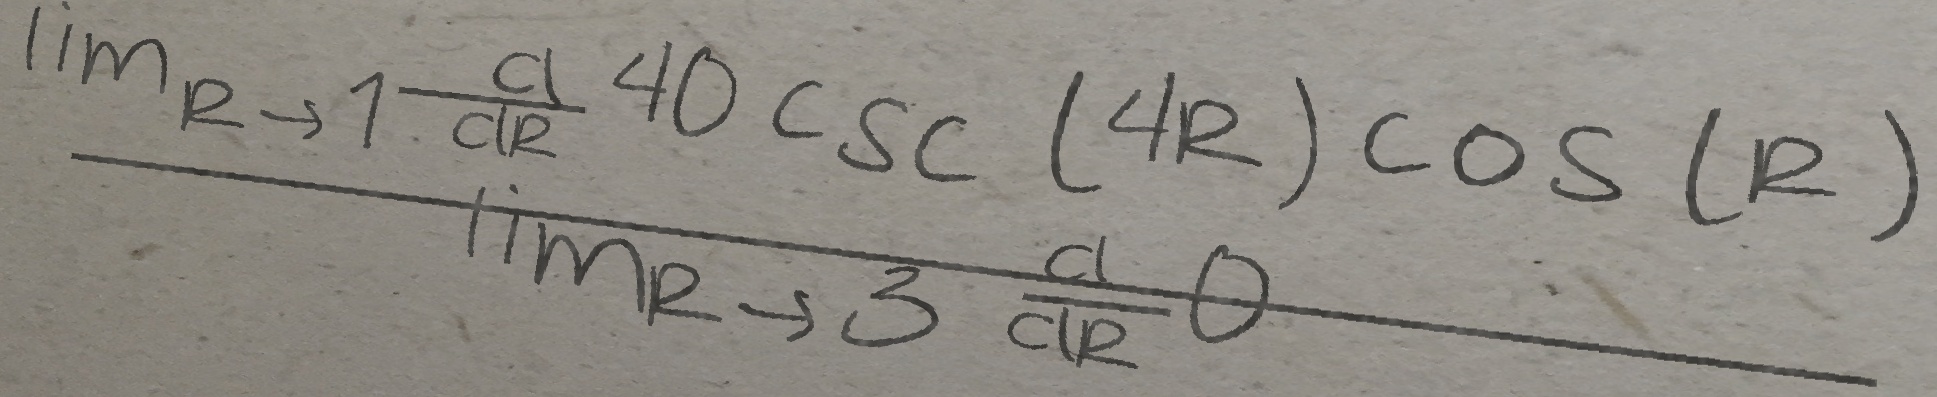 \frac{\lim_{R \to 1} \frac{d}{dR} 40 \csc(4R) \cos(R)}{\lim_{R \to 3} \frac{d}{dR} 0}